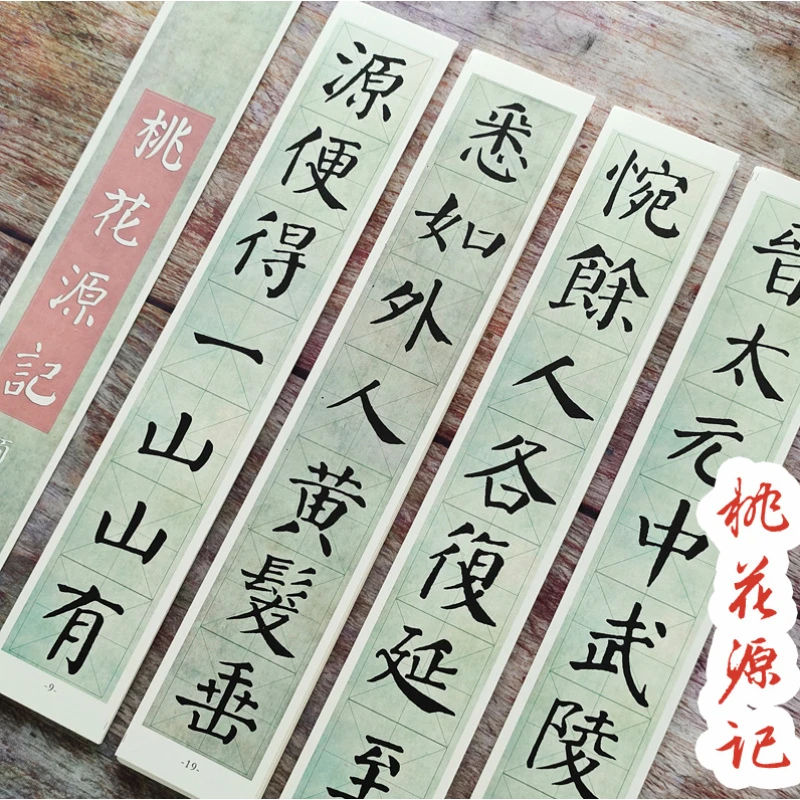 桃花源記
源便得一山山有
-9-
悉如外人黄髮垂
-19-
惋餘人各復延至
晉太元中武陵
桃花源记